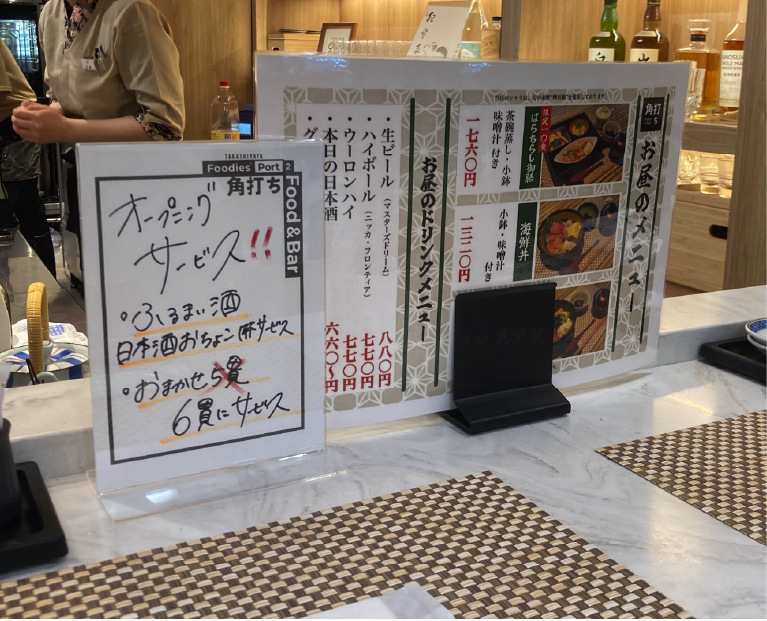 TAKASHIMAYA
Foodies Port 2
角打ち
Food & Bar
オープニング
サービス!!
・ふるまい酒
日本酒おちょこ1杯サービス
・おまかせ5貫
6貫にサービス
角打ち
お昼のメニュー
限定一〇食
ばらちらし御膳
茶碗蒸し・小鉢
味噌汁 付き
一七六〇円
海鮮丼
小鉢・味噌汁
付き
一三二〇円
お昼のドリンクメニュー
・生ビール (マスターズドリーム) 八八〇円
・ハイボール (ニッカ・フロンティア) 七七〇円
・ウーロンハイ 七七〇円
・本日の日本酒 六六〇〜円
・グ